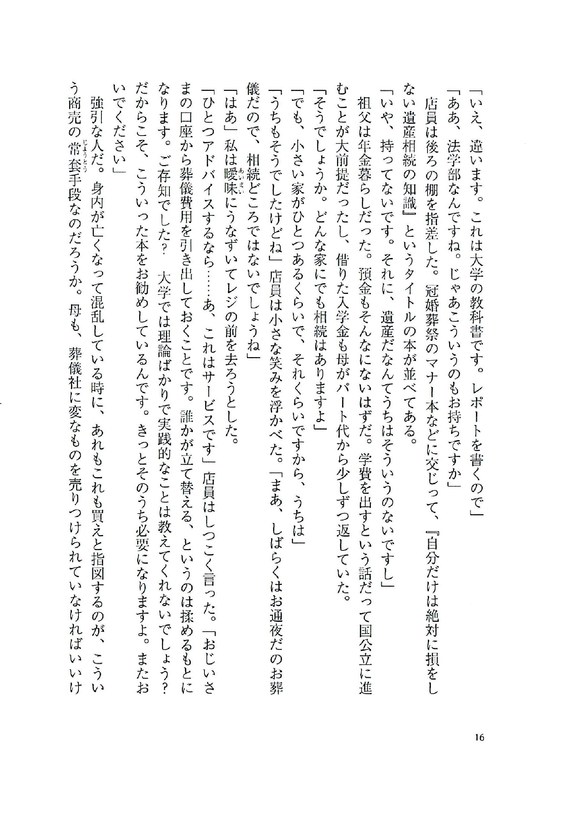 「いえ、違います。これは大学の教科書です。レポートを書くので」
「ああ、法学部なんですね。じゃあこういうのもお持ちですか」
店員は後ろの棚を指差した。冠婚葬祭のマナー本などに交じって、『自分だけは絶対に損をし
ない遺産相続の知識』というタイトルの本が並べてある。
「いや、持ってないです。それに、遺産だなんてうちはそういうのないですし」
祖父は年金暮らしだった。預金もそんなにないはずだ。学費を出すという話だって国公立に進
むことが大前提だったし、借りた入学金も母がパート代から少しずつ返していた。
「そうでしょうか。どんな家にでも相続はありますよ」
「でも、小さい家がひとつあるくらいで、それくらいですから、うちは」
「うちもそうでしたけどね」店員は小さな笑みを浮かべた。「まあ、しばらくはお通夜だのお葬
儀だので、相続どころではないでしょうね」
「はあ」私は曖昧にうなずいてレジの前を去ろうとした。
「ひとつアドバイスするなら……あ、これはサービスです」店員はしつこく言った。「おじいさ
まの口座から葬儀費用を引き出しておくことです。誰かが立て替える、というのは揉めるもとに
なります。ご存知でした？　大学では理論ばかりで実践的なことは教えてくれないでしょう？
だからこそ、こういった本をお勧めしているんです。きっとそのうち必要になりますよ。またお
いでください」
強引な人だ。身内が亡くなって混乱している時に、あれもこれも買えと指図するのが、こうい
う商売の常套手段なのだろうか。母も、葬儀社に変なものを売りつけられていなければいいけ
16